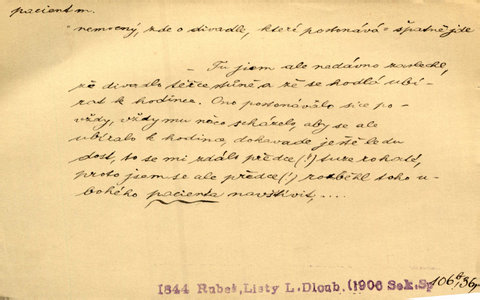 pacient m.
"nemocný, zde o divadle, které postonává = špatně jde
– Tu jsem ale nedávno zaslechl,
že divadlo těžce stůně a že se hodlá ubí-
rat k hodince. Ono postonávalo sice po-
vždy, vždy mu něco scházelo, aby se ale
ubíralo k hodince, dokavade ještě ledu
dost, to se mi zdálo předce(!) tuze rohaté,
proto jsem se ale předce(!) rozběhl toho u-
bohého pacienta navštívit, ....
1844 Rubeš, Listy L. Dloub. (1906 Sek. Sp
106/36